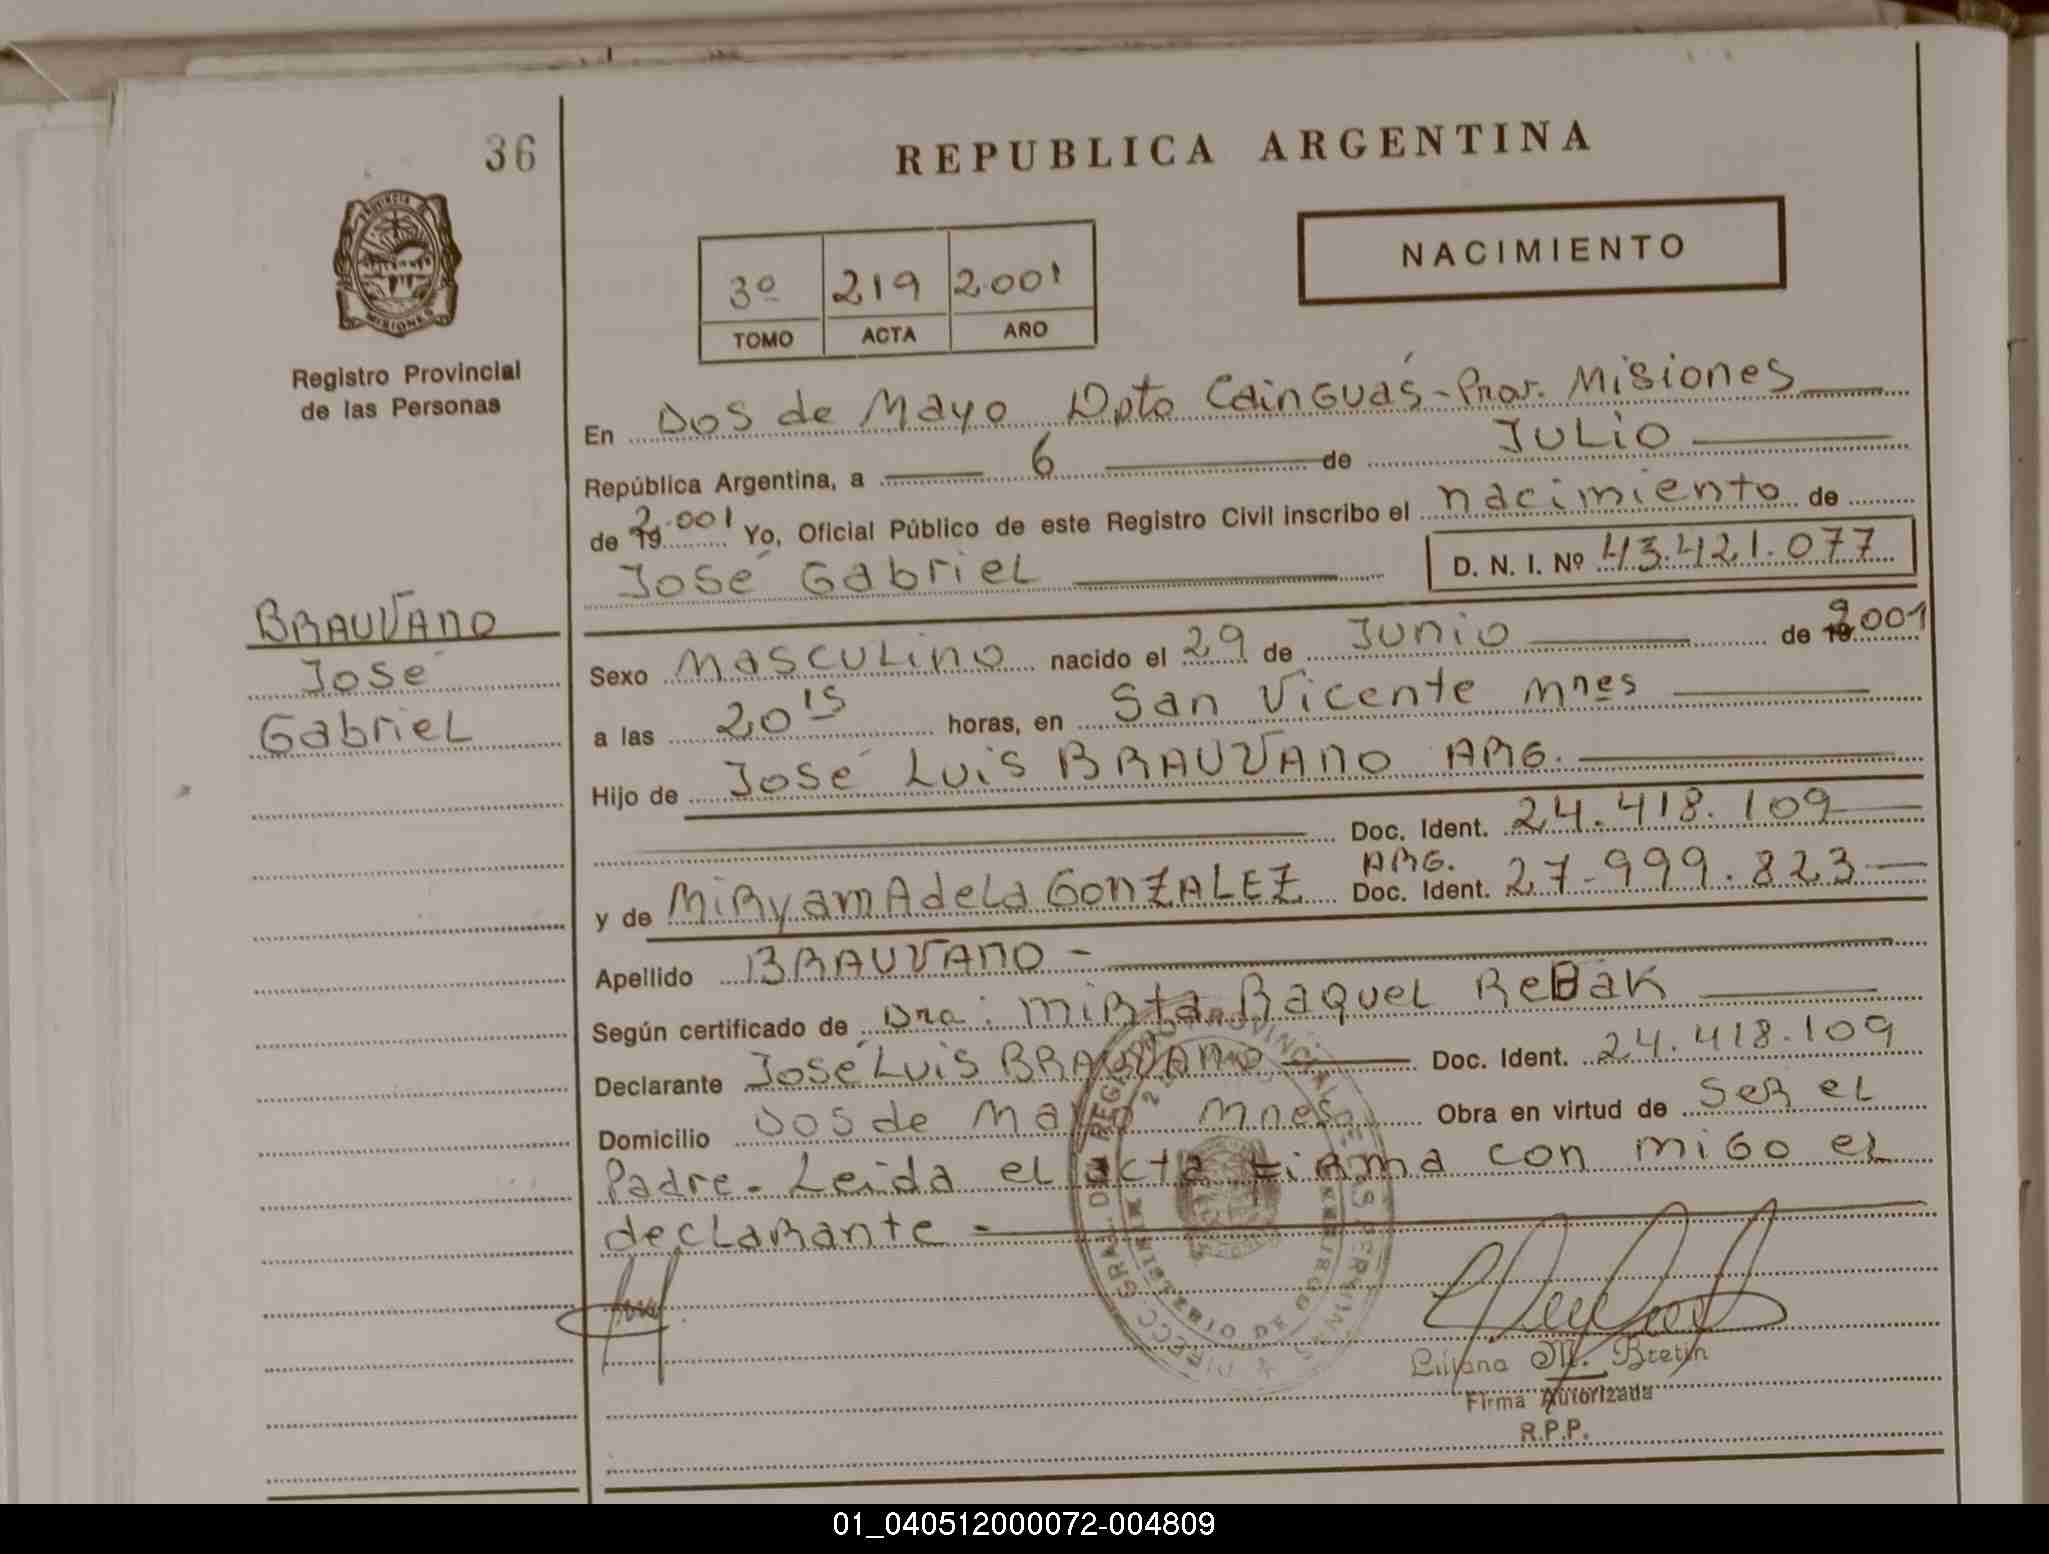 36
REPUBLICA ARGENTINA
PROVINCIA DE
MISIONES
Registro Provincial
de las Personas
NACIMIENTO
3º 219 2.001
TOMO ACTA AÑO
En Dos de Mayo Dpto Cainguás - Prov. Misiones
República Argentina, a 6 de Julio
de 19 2.001 Yo, Oficial Público de este Registro Civil inscribo el nacimiento de
José Gabriel D. N. I. Nº 43.421.077
BRAUVANO
José
Gabriel
Sexo Masculino nacido el 29 de Junio de 19 2001
a las 20 15 horas, en San Vicente Mnes
Hijo de José Luis BRAUVANO ARG.
Doc. Ident. 24.418.109
ARG.
y de MiRyam Adela GONZALEZ Doc. Ident. 27-999.823
Apellido BRAUVANO -
Según certificado de Dra: MiRta Raquel ReBak
Declarante José Luis BRAUVANO Doc. Ident. 24.418.109
Domicilio Dos de Mayo Mnes Obra en virtud de Ser el
Padre. Leida el acta Firma con migo el
declarante -
Liliana M. Bretin
Firma Autorizada
R.P.P.
01_040512000072-004809